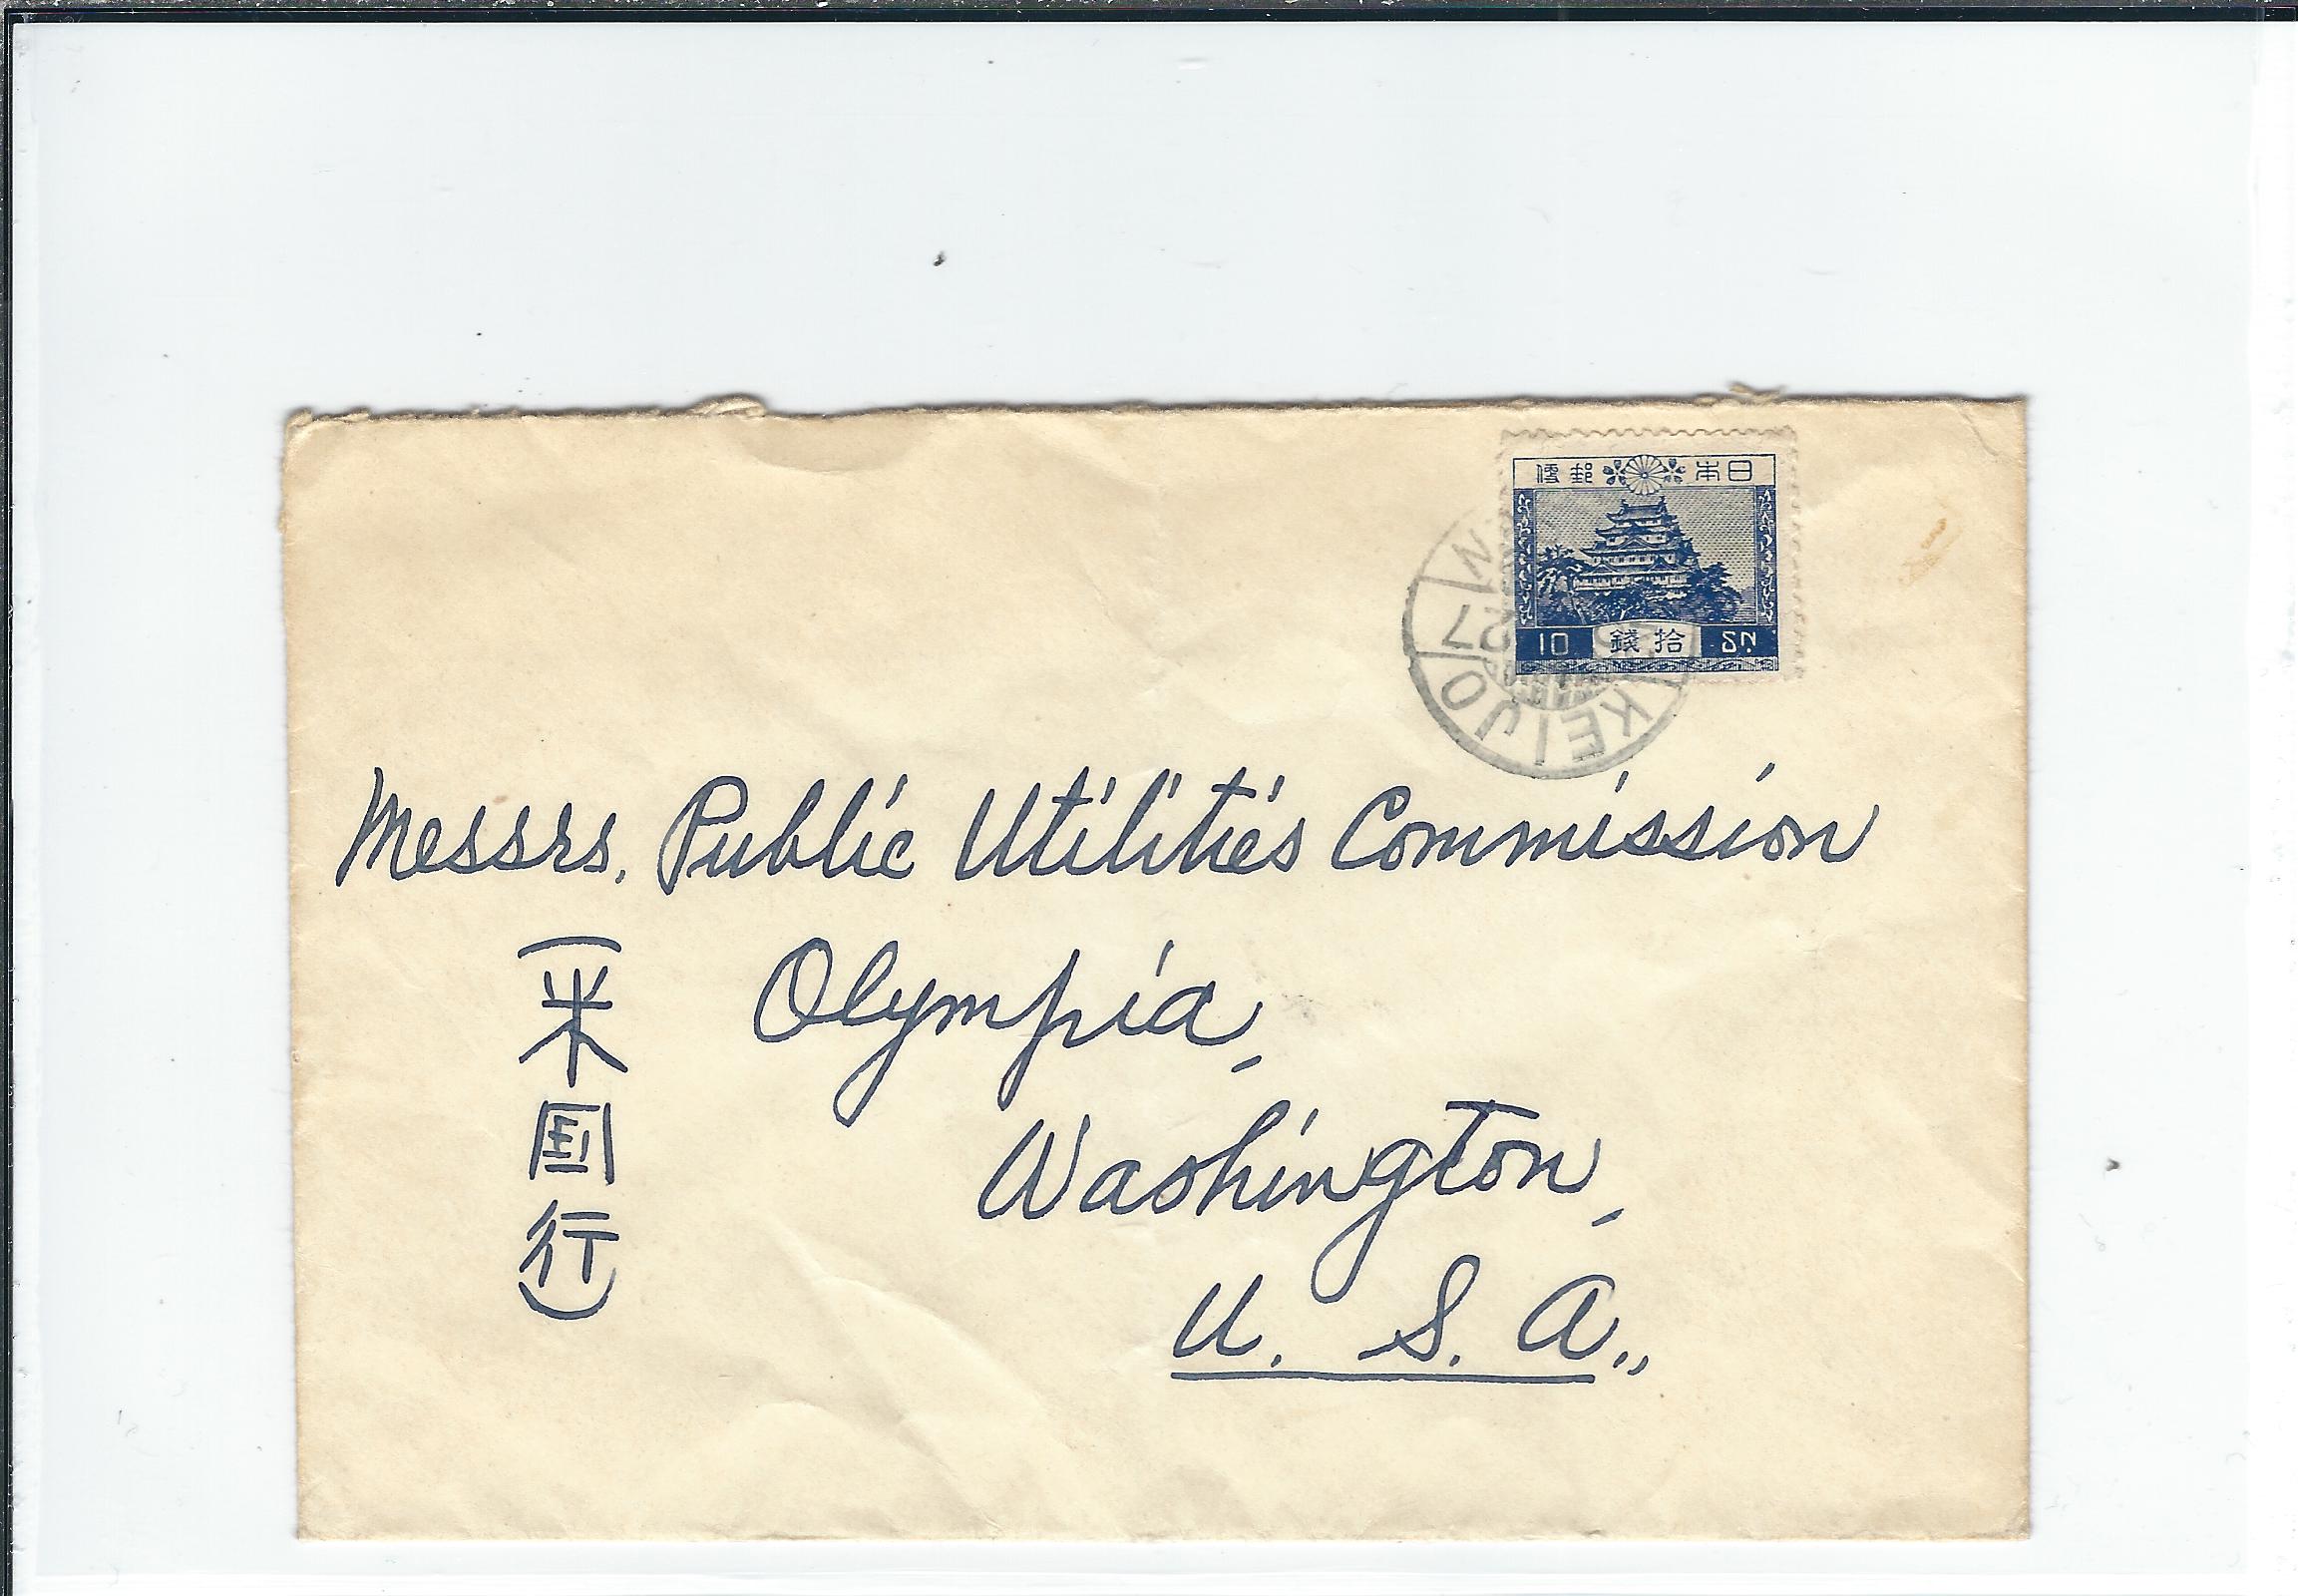 便郵 本日
10 錢拾 SN.
KEIJO
Messrs. Public Utilities Commission
Olympia,
Washington,
U. S. A.,,
(米国行)